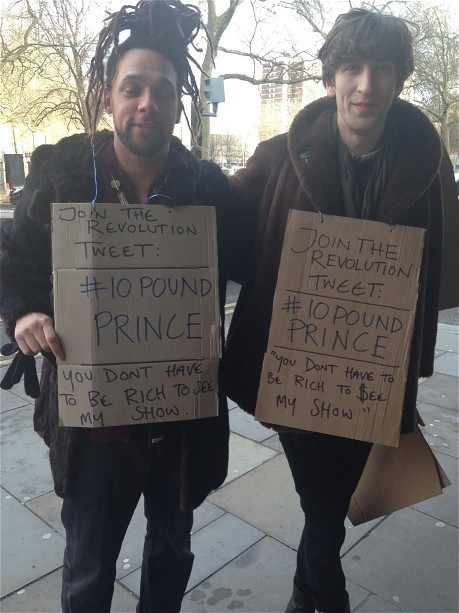 JOIN THE
REVOLUTION
TWEET:
#10 POUND
PRINCE
YOU DONT HAVE
TO BE RICH TO SEE
MY SHOW.
JOIN THE
REVOLUTION
TWEET:
#10 POUND
PRINCE
"YOU DONT HAVE TO
BE RICH TO $EE
MY SHOW"